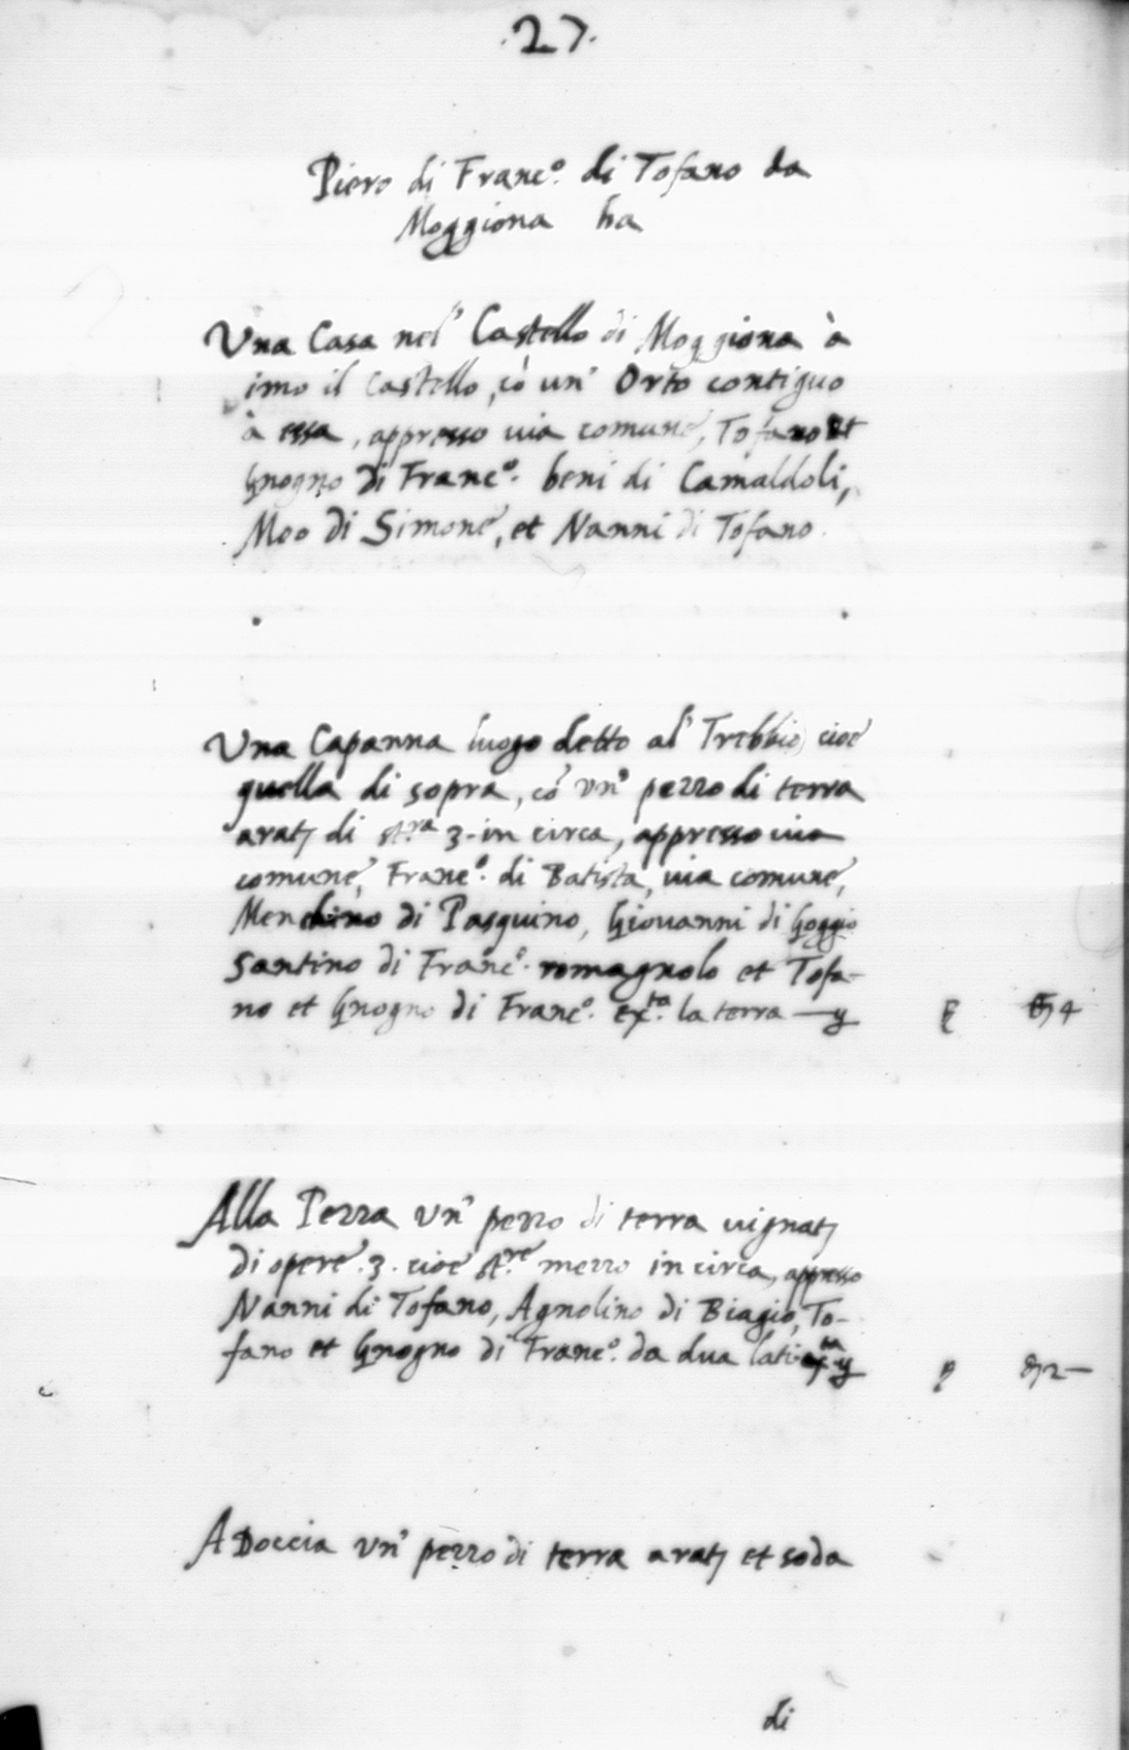 .27.
Piero di Franc.º di Tofano da
Moggiona ha
Una Casa nel' Castello di Moggiona à
imo il Castello, cò un' Orto contiguo
à essa, appresso via comune, Tofano et
Gnogno di Franc.º beni di Camaldoli,
Meo di Simone, et Nanni di Tofano.
Una Capanna luogo detto al' Trebbio, cioe
quella di sopra, cò un' pezzo di terra
arat. di st.ra 3. in circa, appresso via
comune, Franc.º di Batista, via comune,
Menchino di Pasquino, Giovanni di Goggio
Santino di Franc.º romagnolo et Tofa-
no et Gnogno di Franc.º ex.ta la terra
Alla Pezza un' pezzo di terra vignat.
di opere .3. cioe st.re mezzo in circa, appresso
Nanni di Tofano, Agnolino di Biagio, To-
fano et Gnogno di Franc.º da dua lati
A Doccia un' pezzo di terra arat. et soda
di